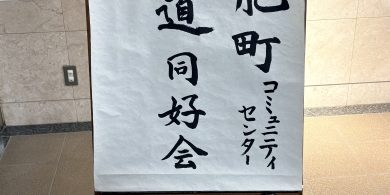 町
コミュニティ
センター
道同好会